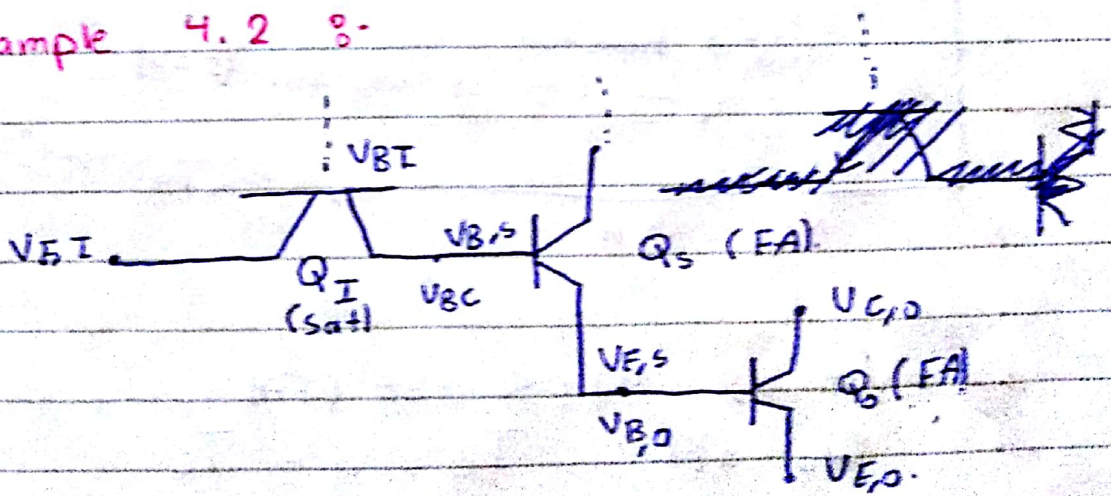 ample 4.2 :-
VBI
VEI
QI
(sat)
VB,S
VBC
QS (FA).
VC,O
VE,S
VB,O
QO (FA)
VE,O.